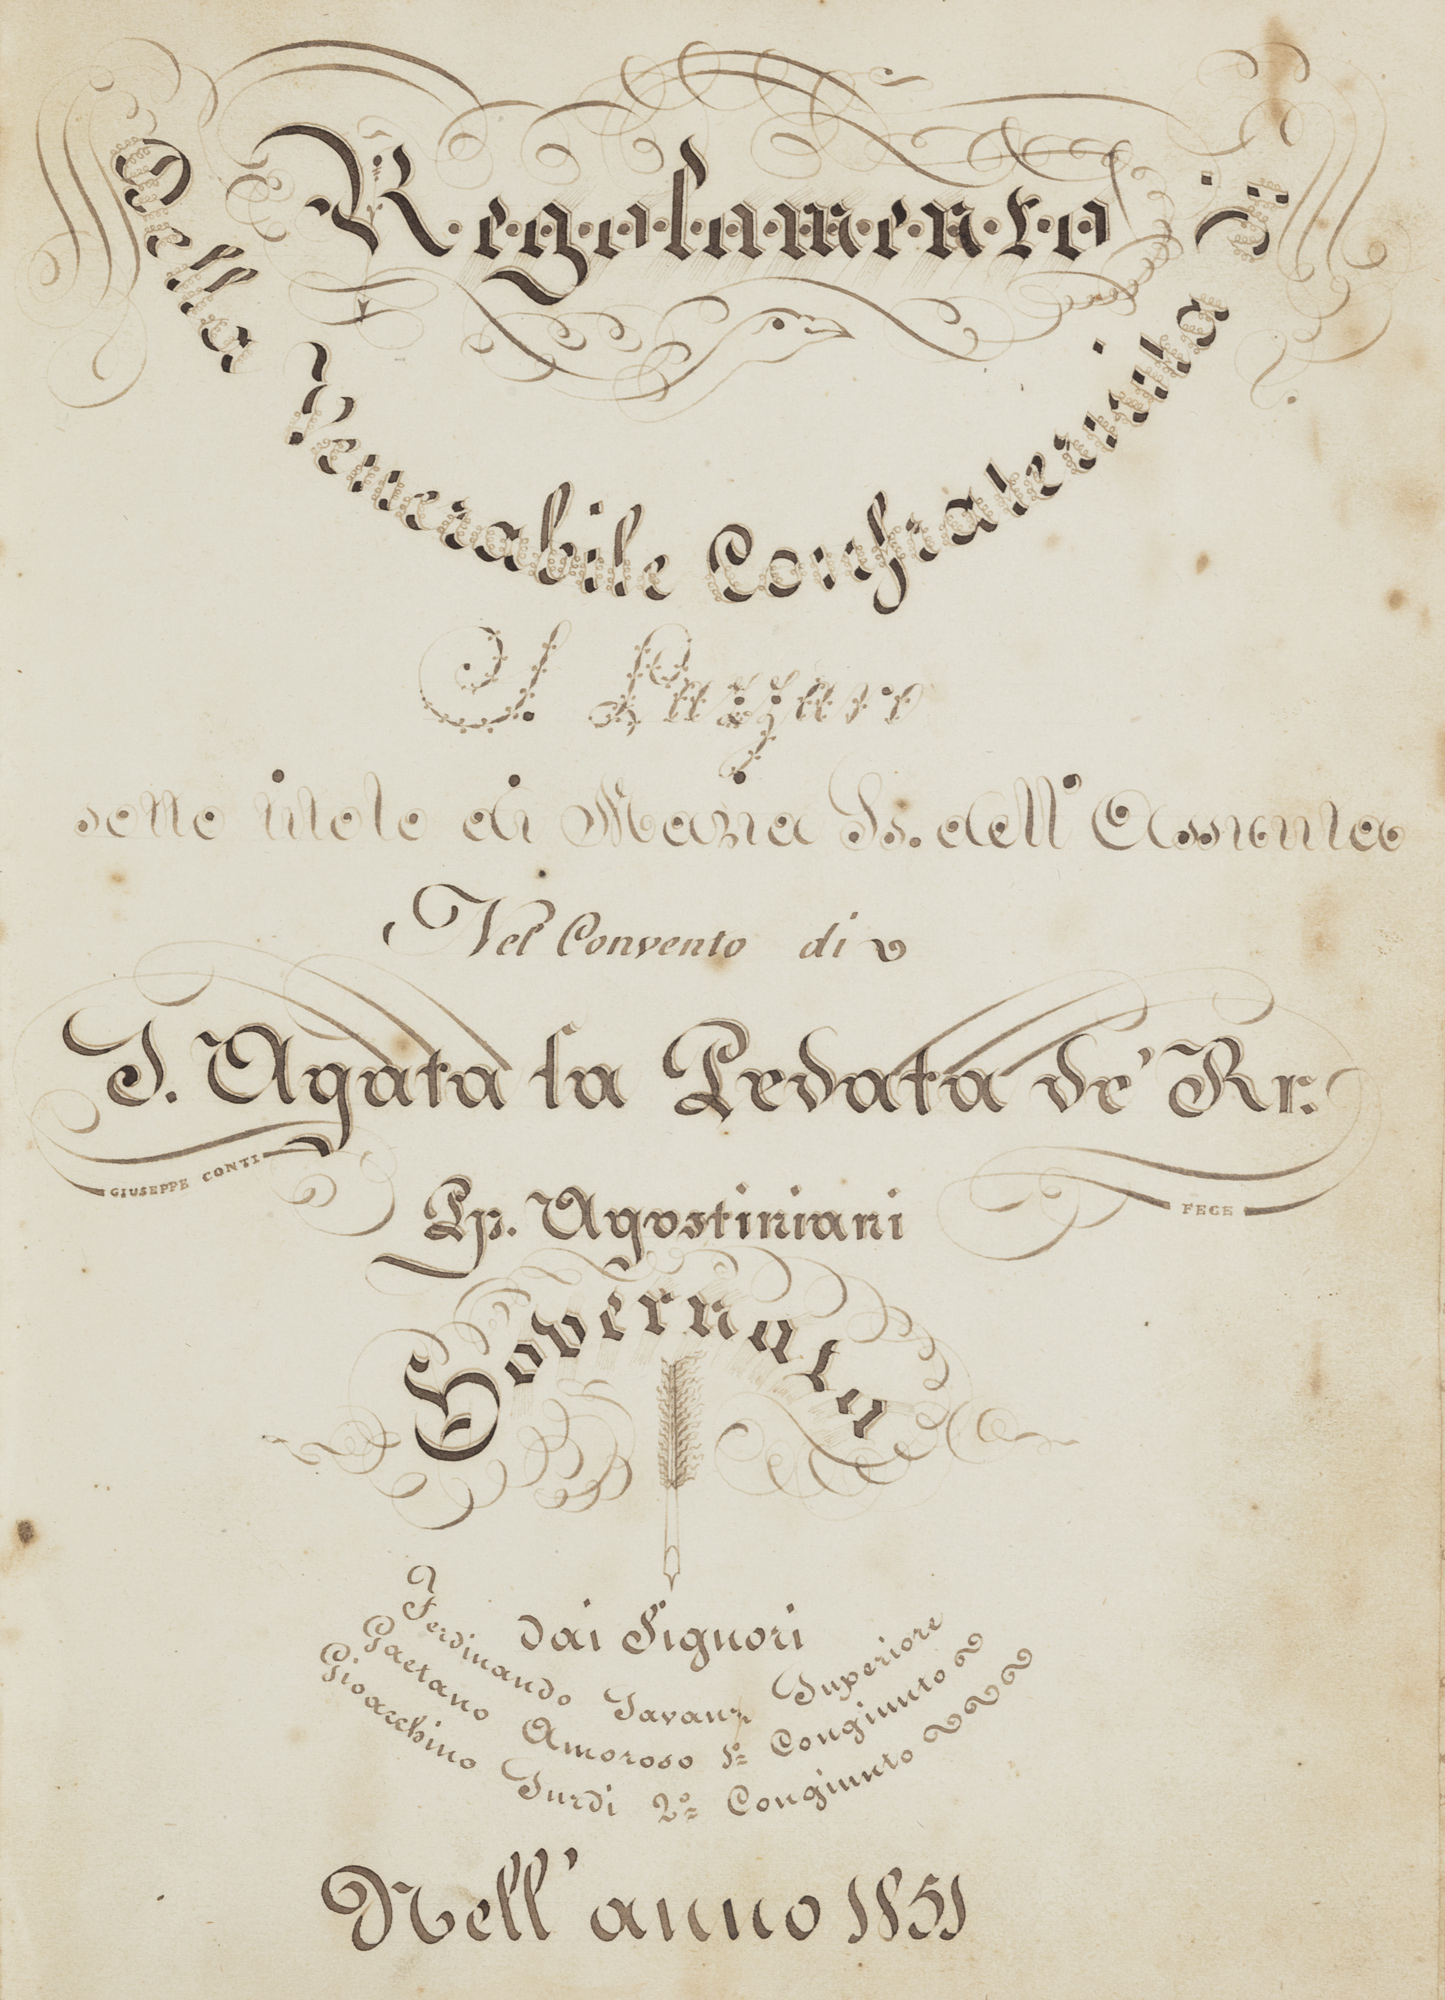 Regolamento
Della Venerabile Confraternita di
S. Lazzaro
sotto titolo di Maria Ss. dell' Assunta
Nel Convento di
S. Agata la Pedata de' Rr.
GIUSEPPE CONTI
FECE
Pp. Agostiniani
Governata
dai Signori
Ferdinando Superiore
Gaetano Amoroso 1º Congiunto
Gioacchino Surdi 2º Congiunto
Nell' anno 1851